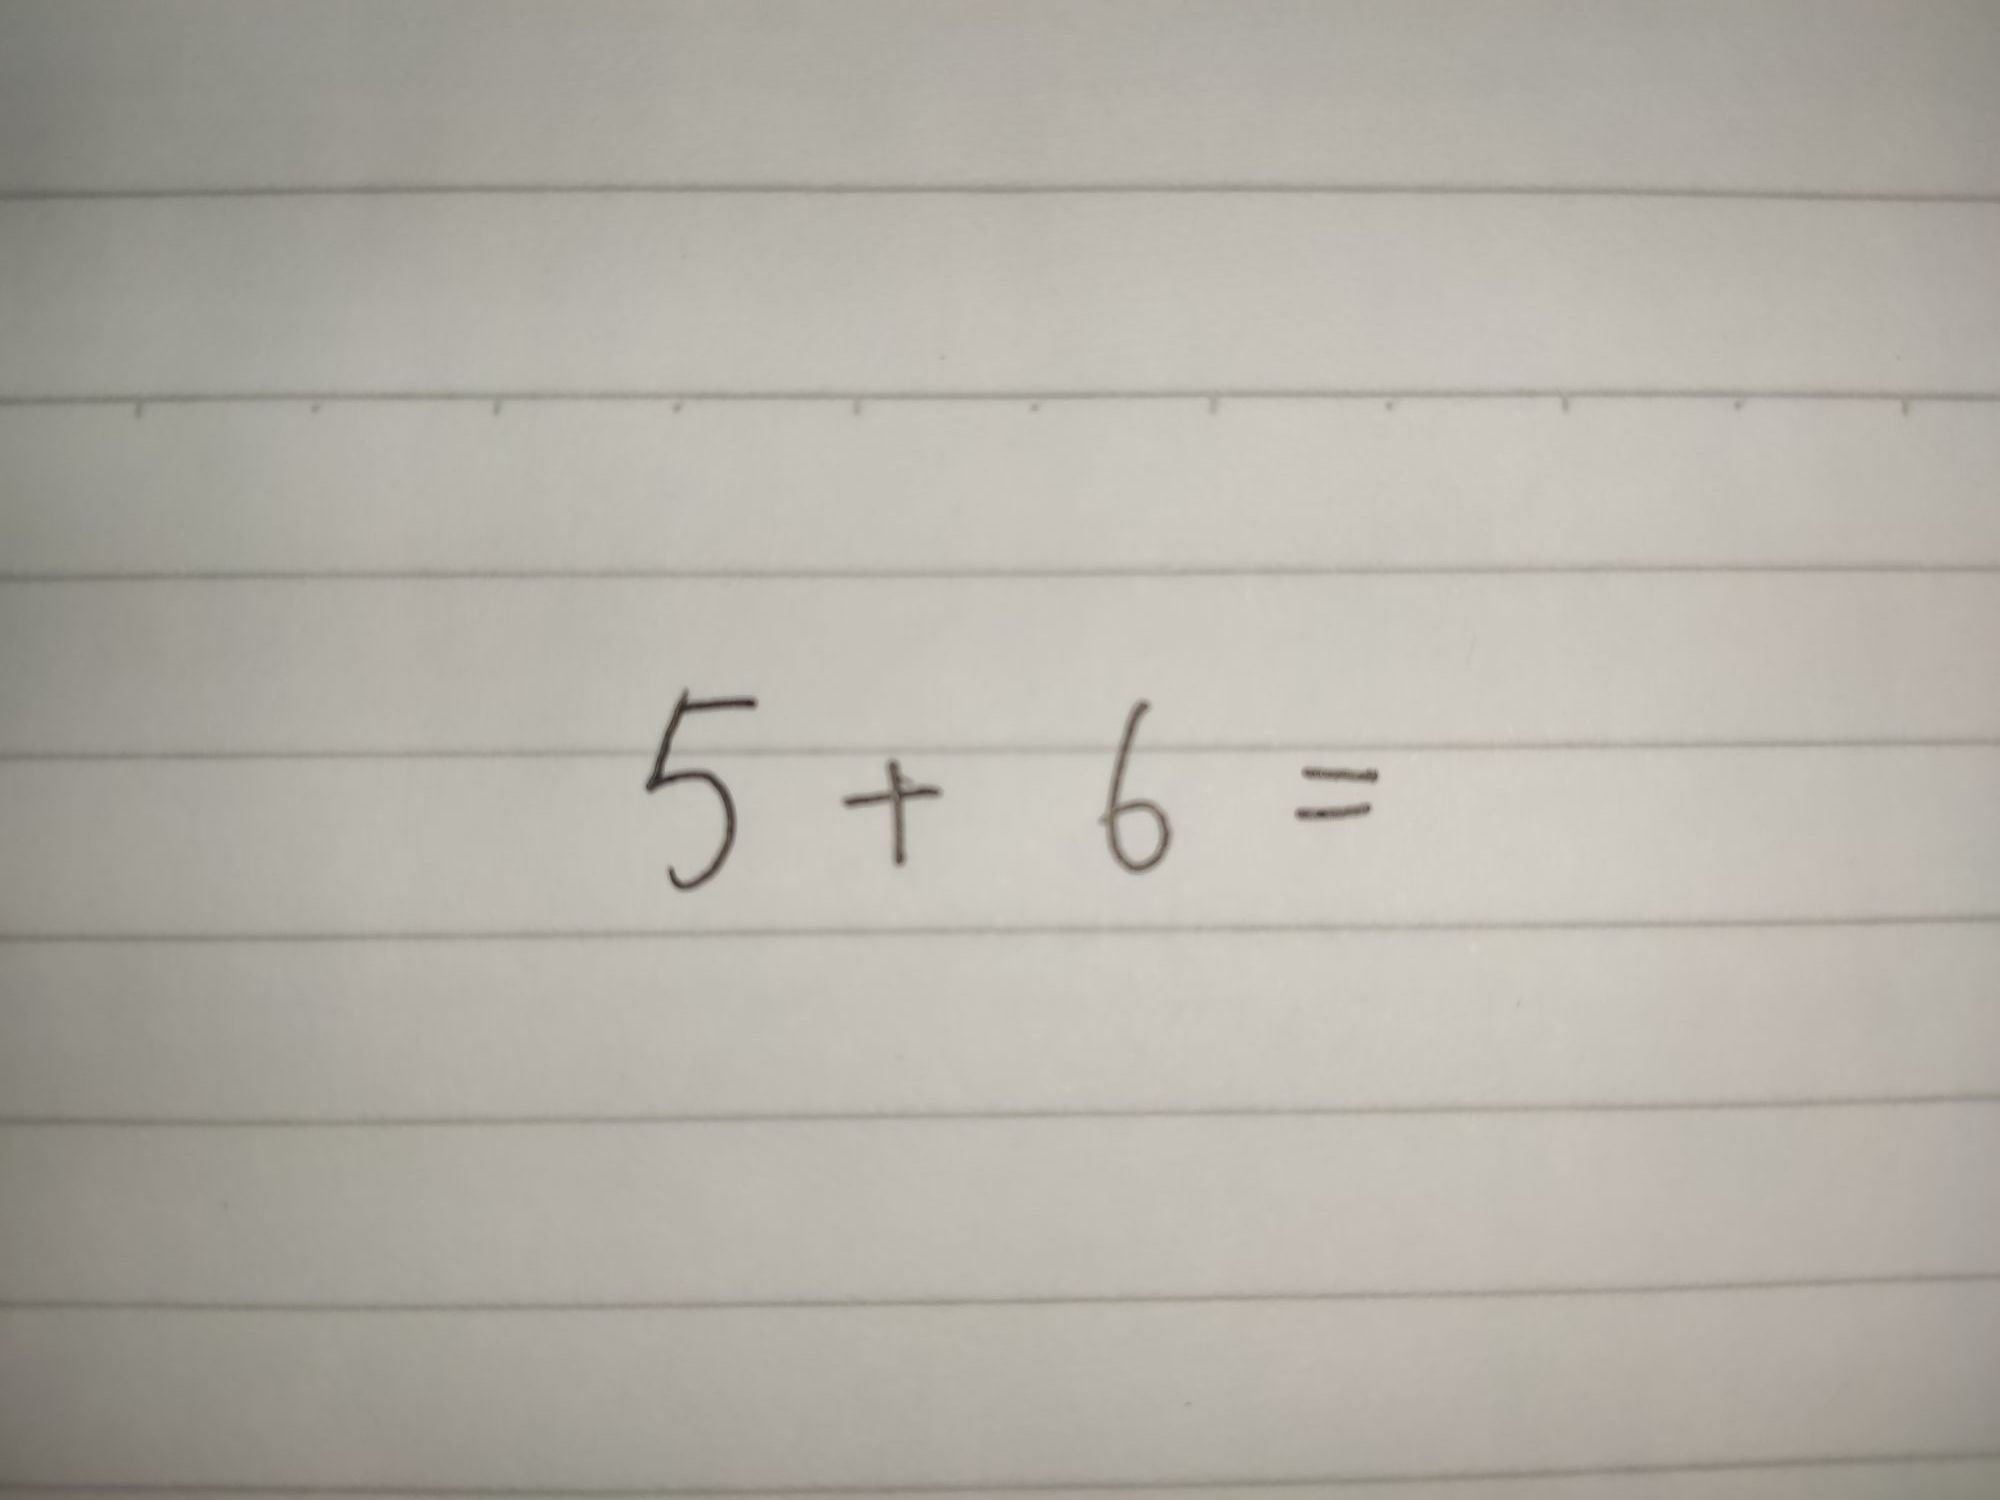 5 + 6 =